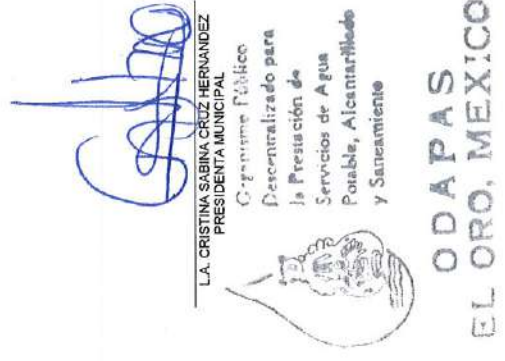 L.A. CRISTINA SABINA CRUZ HERNANDEZ
PRESIDENTA MUNICIPAL
Organismo Público
Descentralizado para
la Prestación de
Servicios de Agua
Potable, Alcantarillado
y Saneamiento
ODAPAS
EL ORO, MEXICO